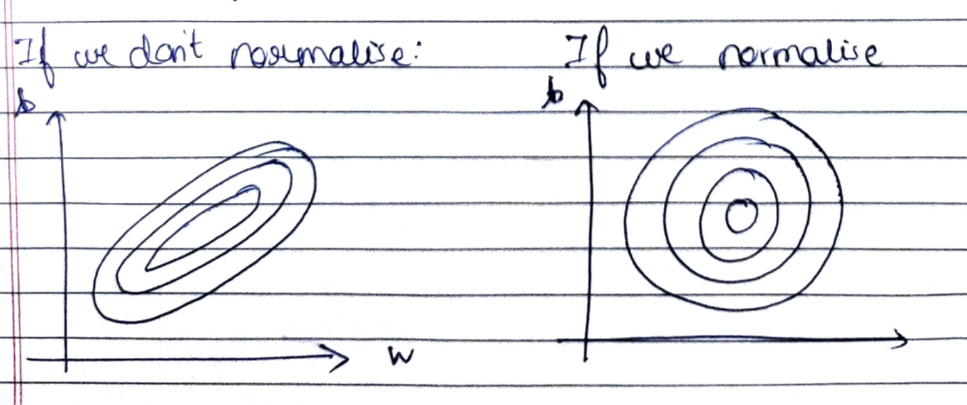 If we don't normalise:
If we normalise
b
b
w